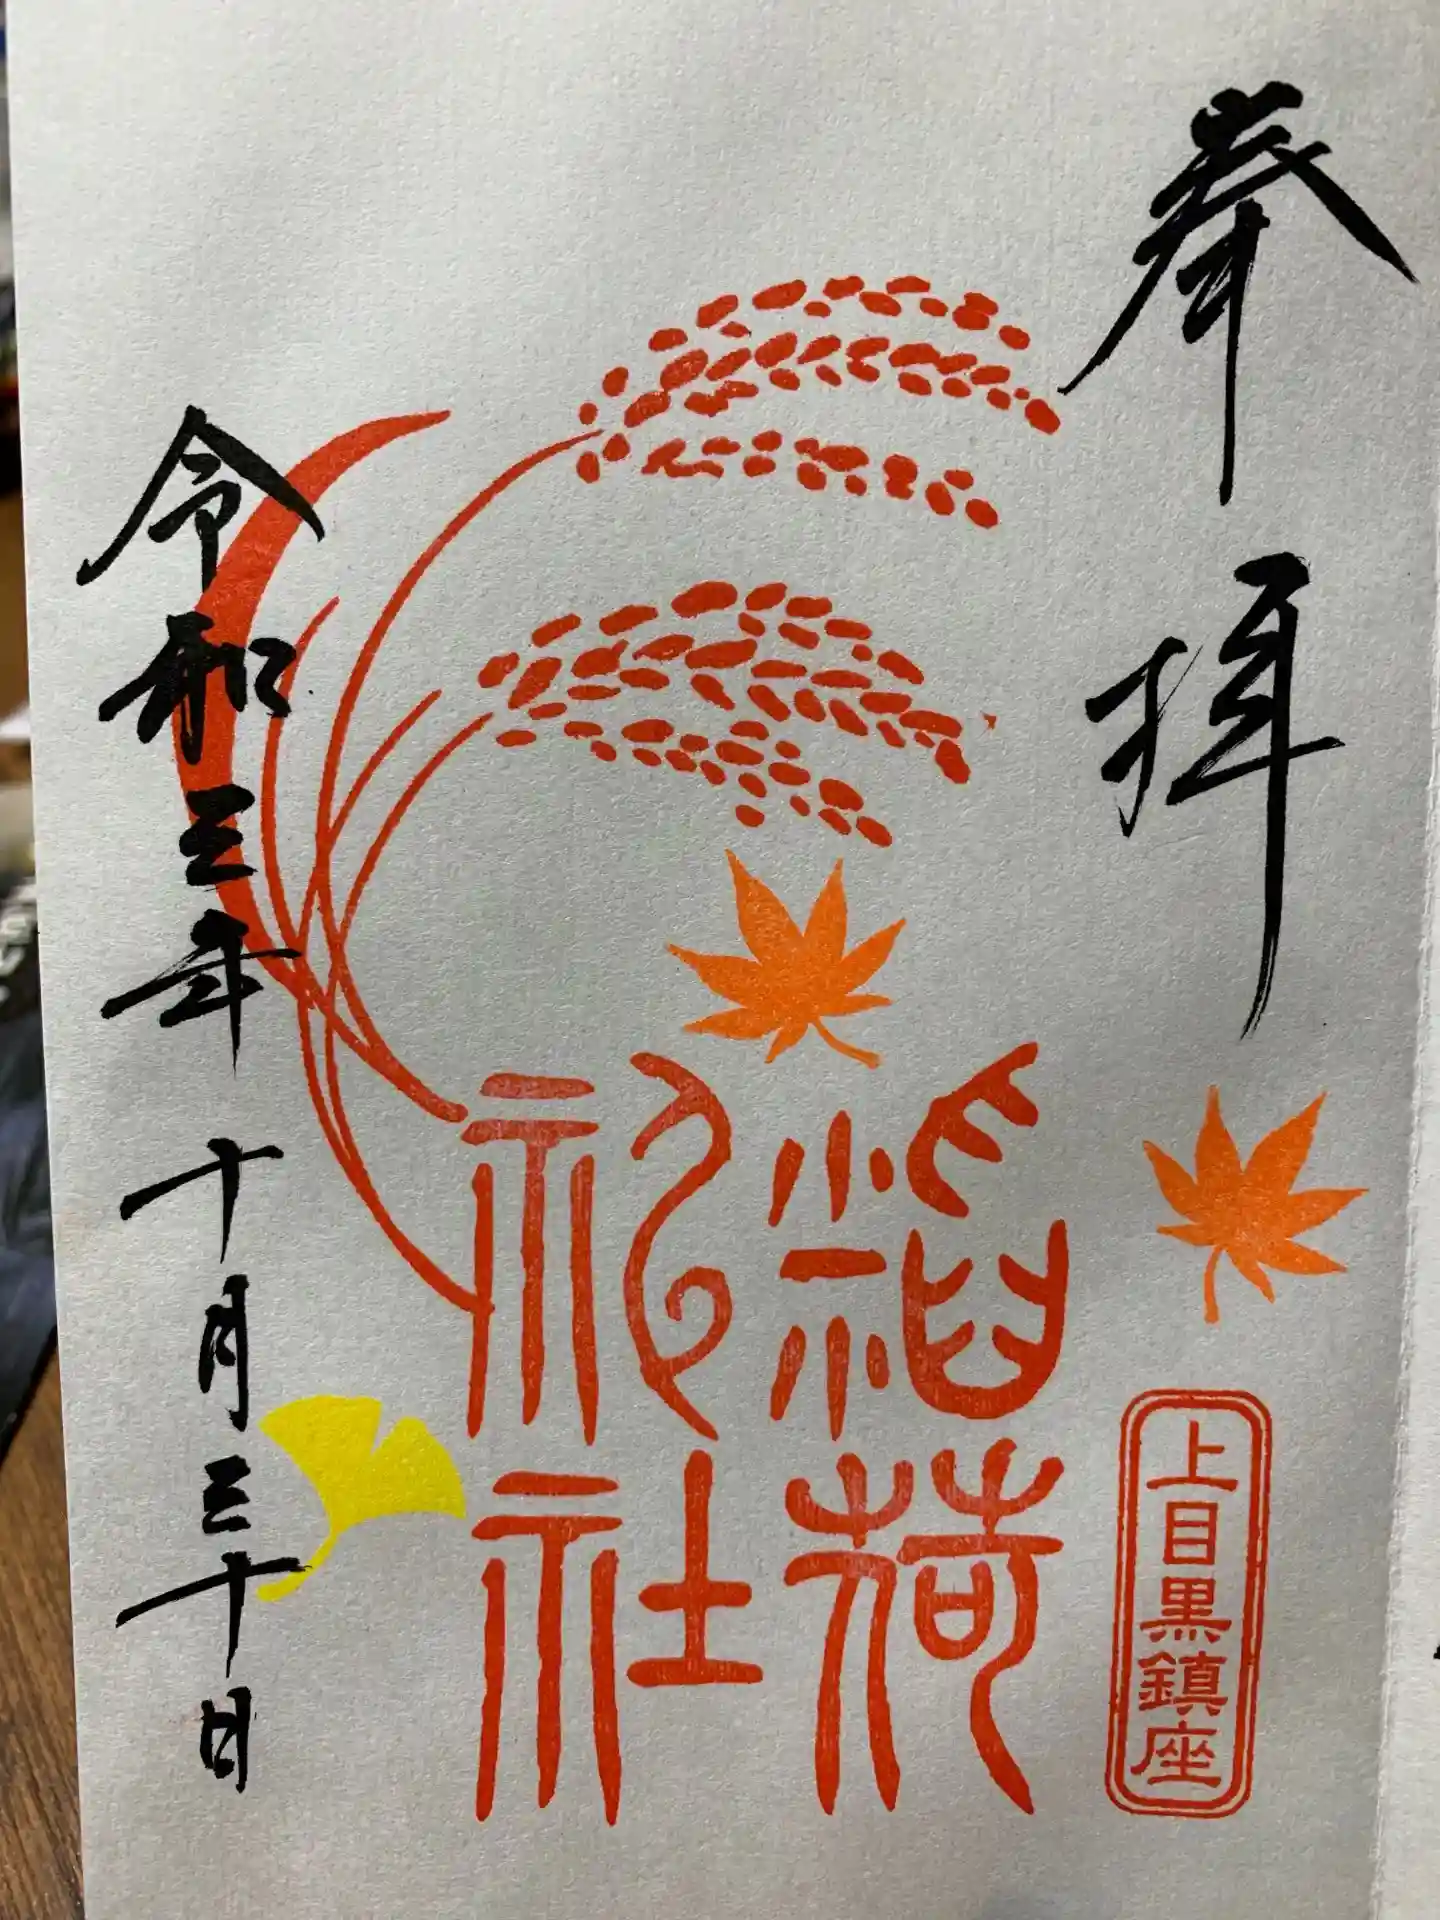 奉拝
上目黒鎮座
稲荷
神社
令和三年十月三十日